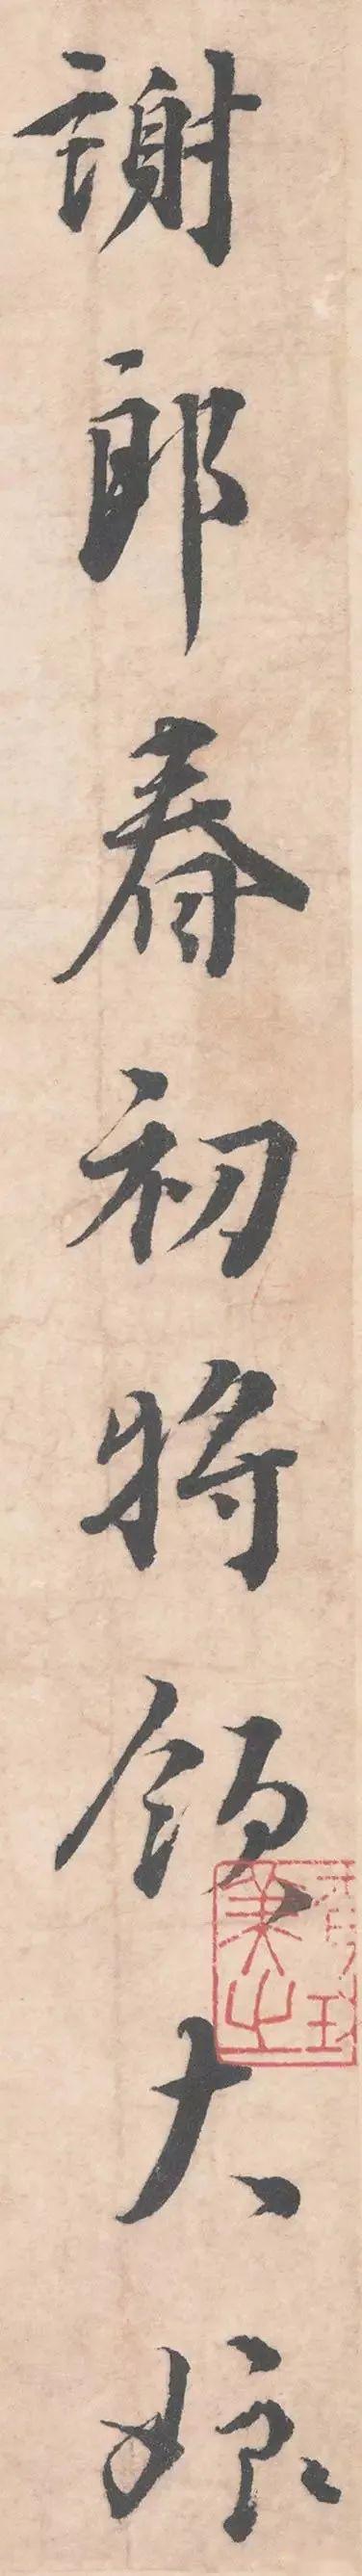 謝郎春初將領大娘
美之